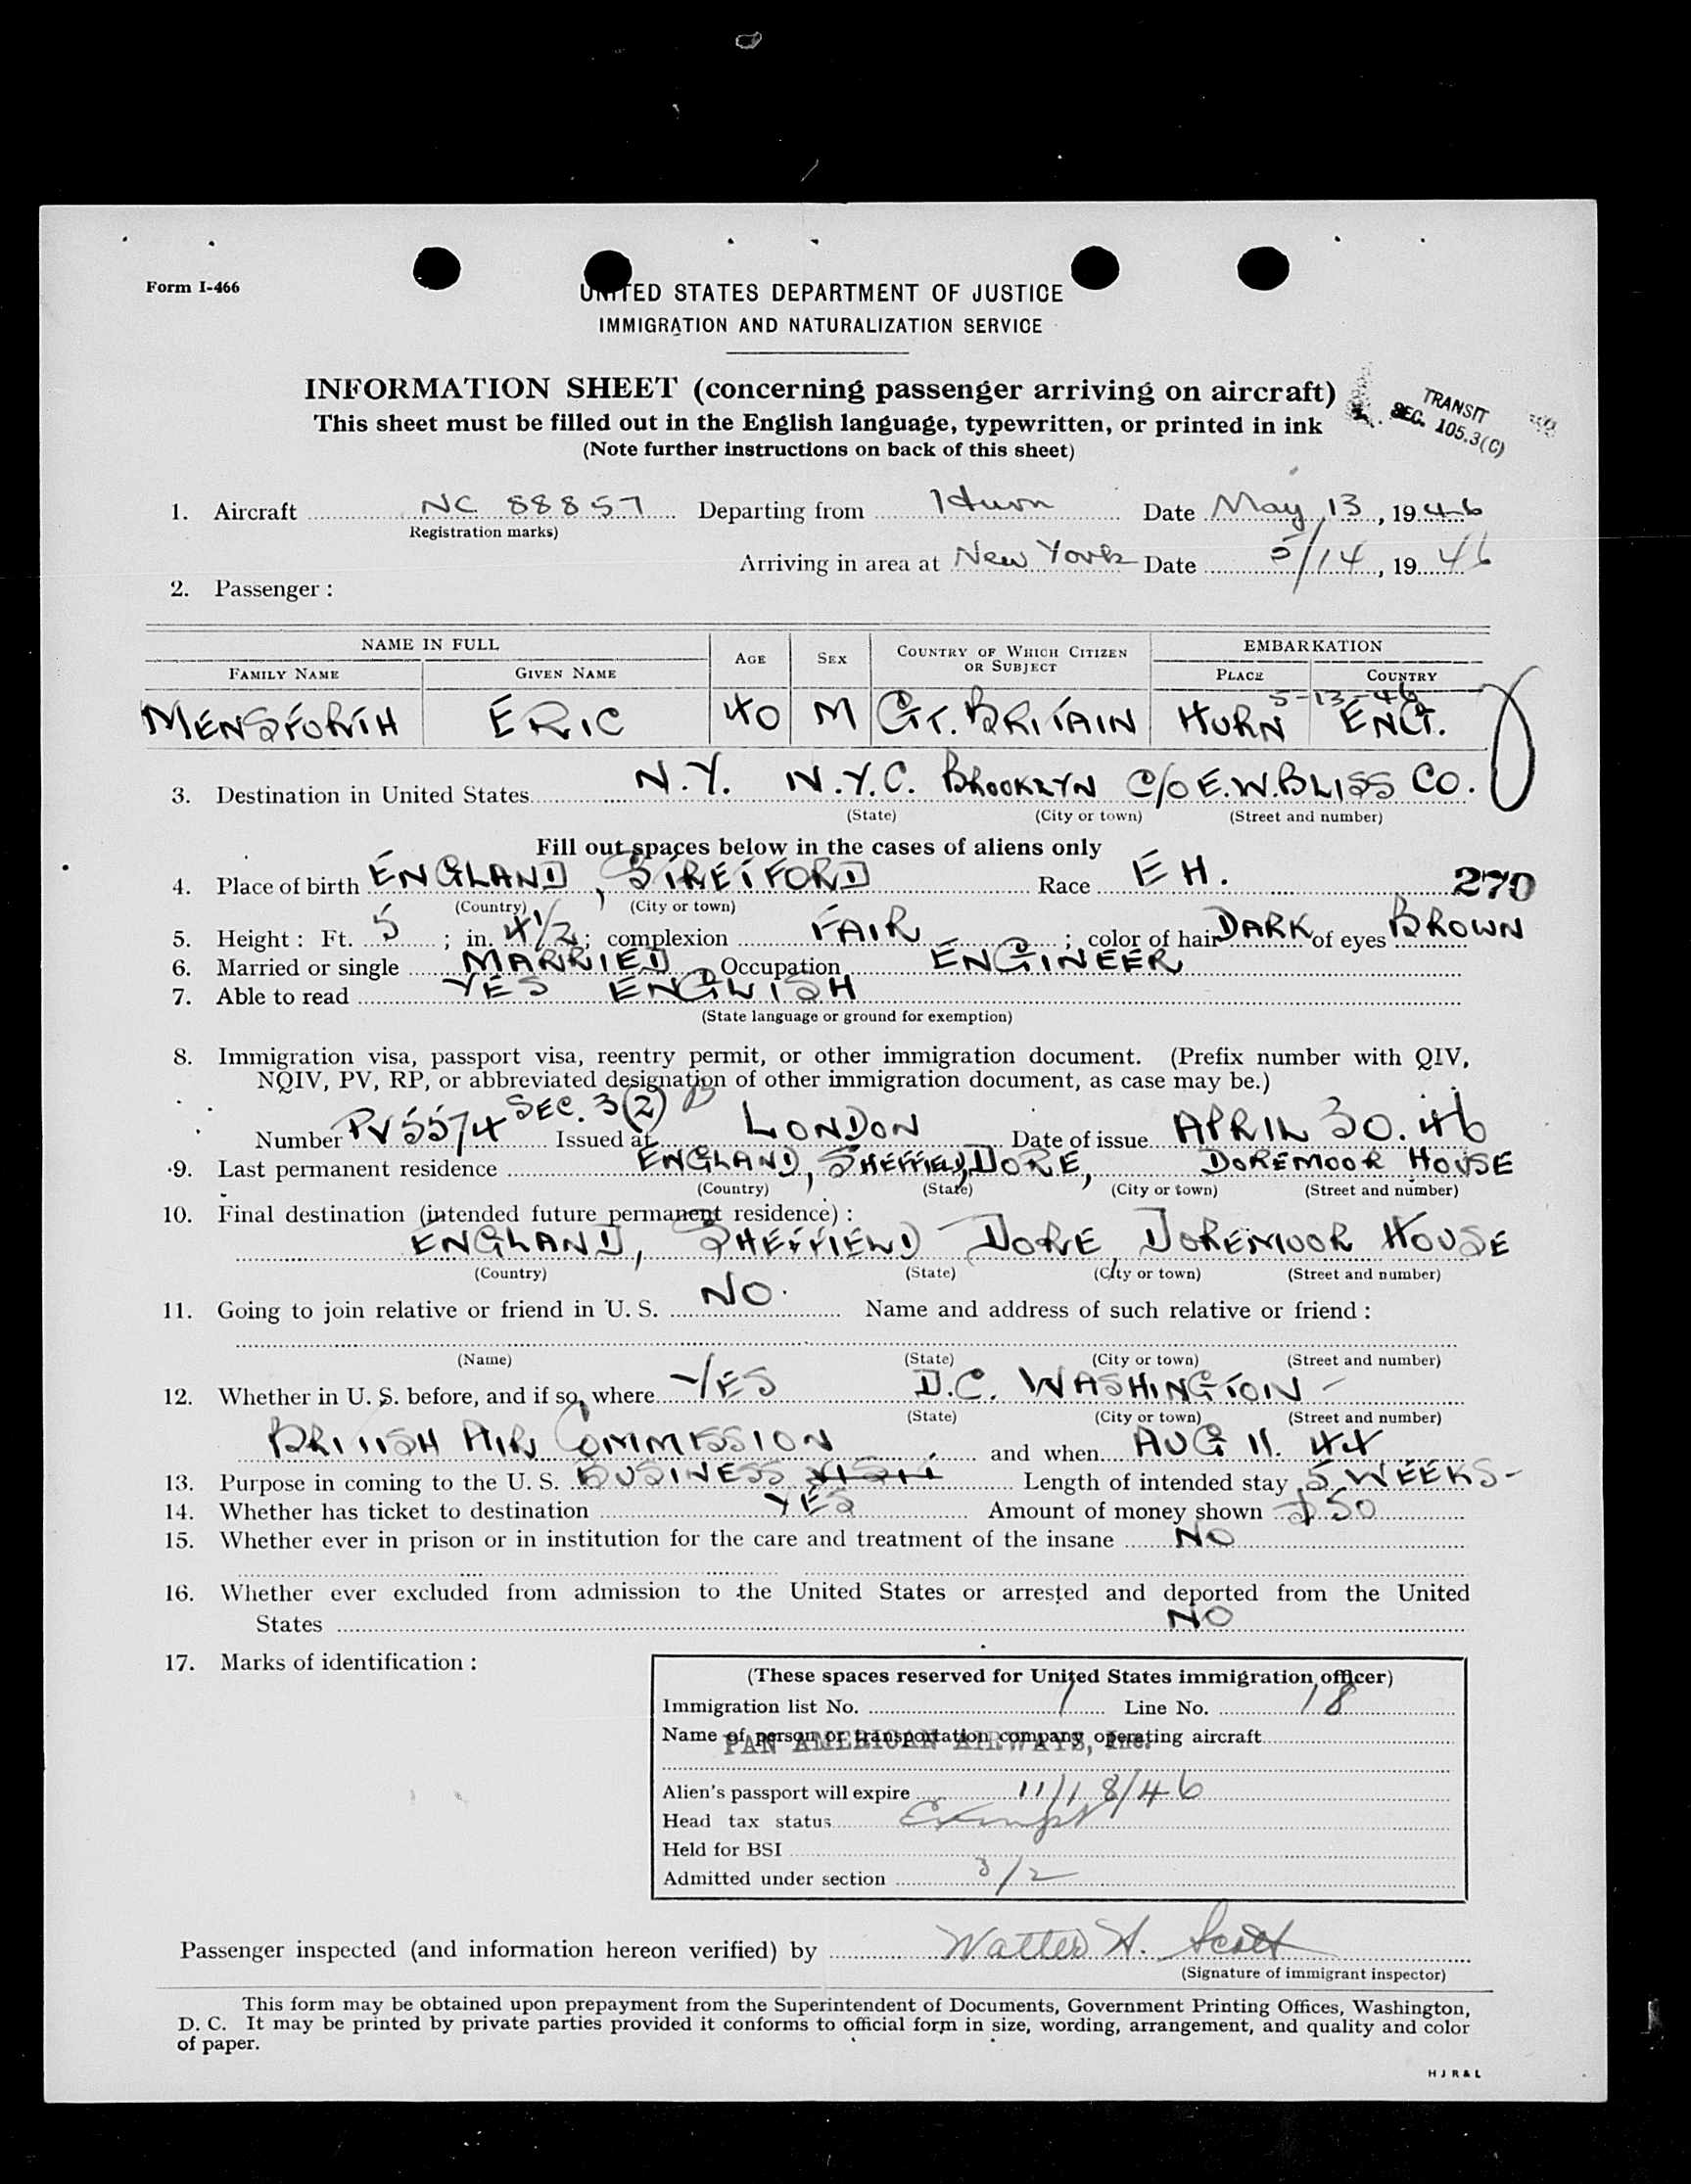 Form I-466
UNITED STATES DEPARTMENT OF JUSTICE
IMMIGRATION AND NATURALIZATION SERVICE
INFORMATION SHEET (concerning passenger arriving on aircraft)
This sheet must be filled out in the English language, typewritten, or printed in ink
(Note further instructions on back of this sheet)
TRANSIT
SEC. 105.3(C)
1. Aircraft NC 88857 Departing from Hurn Date May 13, 1946
(Registration marks)
Arriving in area at New York Date 5/14, 1946
2. Passenger:
NAME IN FULL AGE SEX COUNTRY OF WHICH CITIZEN OR SUBJECT EMBARKATION
FAMILY NAME GIVEN NAME PLACE COUNTRY
5-13-46
MENSFORTH ERIC 40 M GT. BRITAIN HURN ENG.
3. Destination in United States N.Y. N.Y.C. BROOKLYN C/O E.W. BLISS CO.
(State) (City or town) (Street and number)
Fill out spaces below in the cases of aliens only
4. Place of birth ENGLAND, STRETFORD Race EH. 270
(Country) (City or town)
5. Height: Ft. 5; in. 4 1/2; complexion FAIR; color of hair DARK of eyes BROWN
6. Married or single MARRIED, Occupation ENGINEER
7. Able to read YES ENGLISH
(State language or ground for exemption)
8. Immigration visa, passport visa, reentry permit, or other immigration document. (Prefix number with QIV,
NQIV, PV, RP, or abbreviated designation of other immigration document, as case may be.)
Number PV 5574 SEC. 3(2) B Issued at LONDON Date of issue APRIL 30. 46
9. Last permanent residence ENGLAND, SHEFFIELD, DORE, DOREMOOR HOUSE
(Country) (State) (City or town) (Street and number)
10. Final destination (intended future permanent residence):
ENGLAND, SHEFFIELD DORE, DOREMOOR HOUSE
(Country) (State) (City or town) (Street and number)
11. Going to join relative or friend in U. S. NO. Name and address of such relative or friend:
(Name) (State) (City or town) (Street and number)
12. Whether in U. S. before, and if so, where YES D.C. WASHINGTON -
(State) (City or town) (Street and number)
BRITISH AIR COMMISSION and when AUG 11. 44
13. Purpose in coming to the U. S. BUSINESS VISIT Length of intended stay 5 WEEKS-
14. Whether has ticket to destination YES Amount of money shown $50
15. Whether ever in prison or in institution for the care and treatment of the insane NO
16. Whether ever excluded from admission to the United States or arrested and deported from the United
States NO
17. Marks of identification:
(These spaces reserved for United States immigration officer)
Immigration list No. 1 Line No. 18
Name of person or transportation company operating aircraft
PAN AMERICAN AIRWAYS, Inc.
Alien's passport will expire 11/18/46
Head tax status Exempt
Held for BSI
Admitted under section 3/2
Passenger inspected (and information hereon verified) by Walter H. Scott
(Signature of immigrant inspector)
This form may be obtained upon prepayment from the Superintendent of Documents, Government Printing Offices, Washington,
D. C. It may be printed by private parties provided it conforms to official form in size, wording, arrangement, and quality and color
of paper.
H J R & L